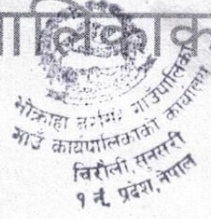 पालिकाक
भोक्राहा नरसिंह गाउँपालिका
गाउँ कार्यपालिकाको कार्यालय
विरौली, सुनसरी
१ नं. प्रदेश, नेपाल